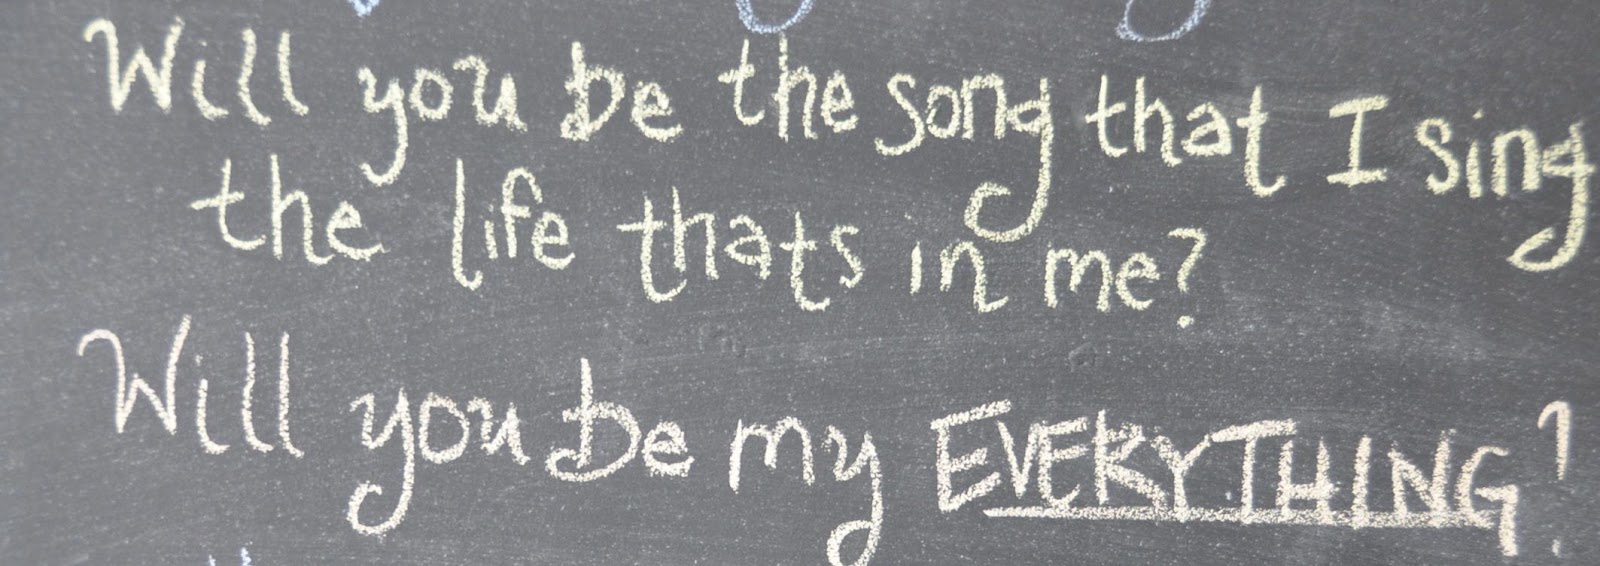 Will you be the song that I sing
the life thats in me?
Will you be my EVERYTHING?